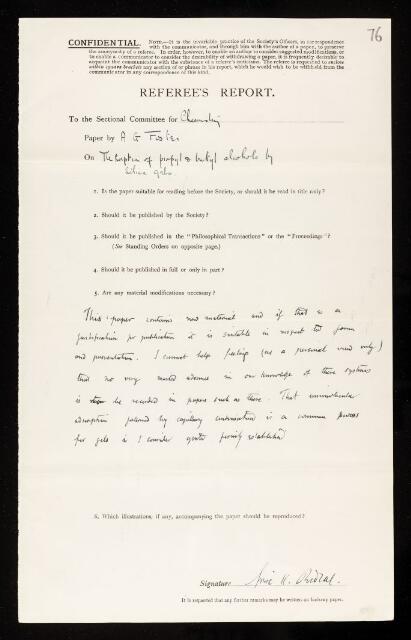 76
CONFIDENTIAL. NOTE.—It is the invariable practice of the Society's Officers, in correspondence
with the communicator, and through him with the author of a paper, to preserve
the anonymity of a referee. In order, however, to enable an author to consider suggested modifications, or
to enable a communicator to consider the desirability of withdrawing a paper, it is frequently desirable to
acquaint the communicator with the substance of a referee's criticisms. The referee is requested to
within square brackets any section of or phrase in his report, which he would wish to be withheld from the
communicator in any correspondence of this kind.
REFEREE'S REPORT.
To the Sectional Committee for Chemistry
Paper by A G Foster
On The Sorption of propyl & butyl alcohols by
silica gels.
1. Is the paper suitable for reading before the Society, or should it be read in title only?
2. Should it be published by the Society?
3. Should it be published in the "Philosophical Transactions" or the "Proceedings"?
(See Standing Orders on opposite page.)
4. Should it be published in full or only in part?
5. Are any material modifications necessary?
This paper contains new material and if that is a
justification for publication it is suitable in respect to form
and presentation. I cannot help feeling (as a personal view only)
that no very marked advance in our knowledge of these systems
is to be recorded in papers such as these. That unimolecular
adsorption followed by capillary condensation is a common process
for gels is I consider quite firmly established
6. Which illustrations, if any, accompanying the paper should be reproduced?
Signature Eric K. Rideal.
It is requested that any further remarks may be written on foolscap paper.